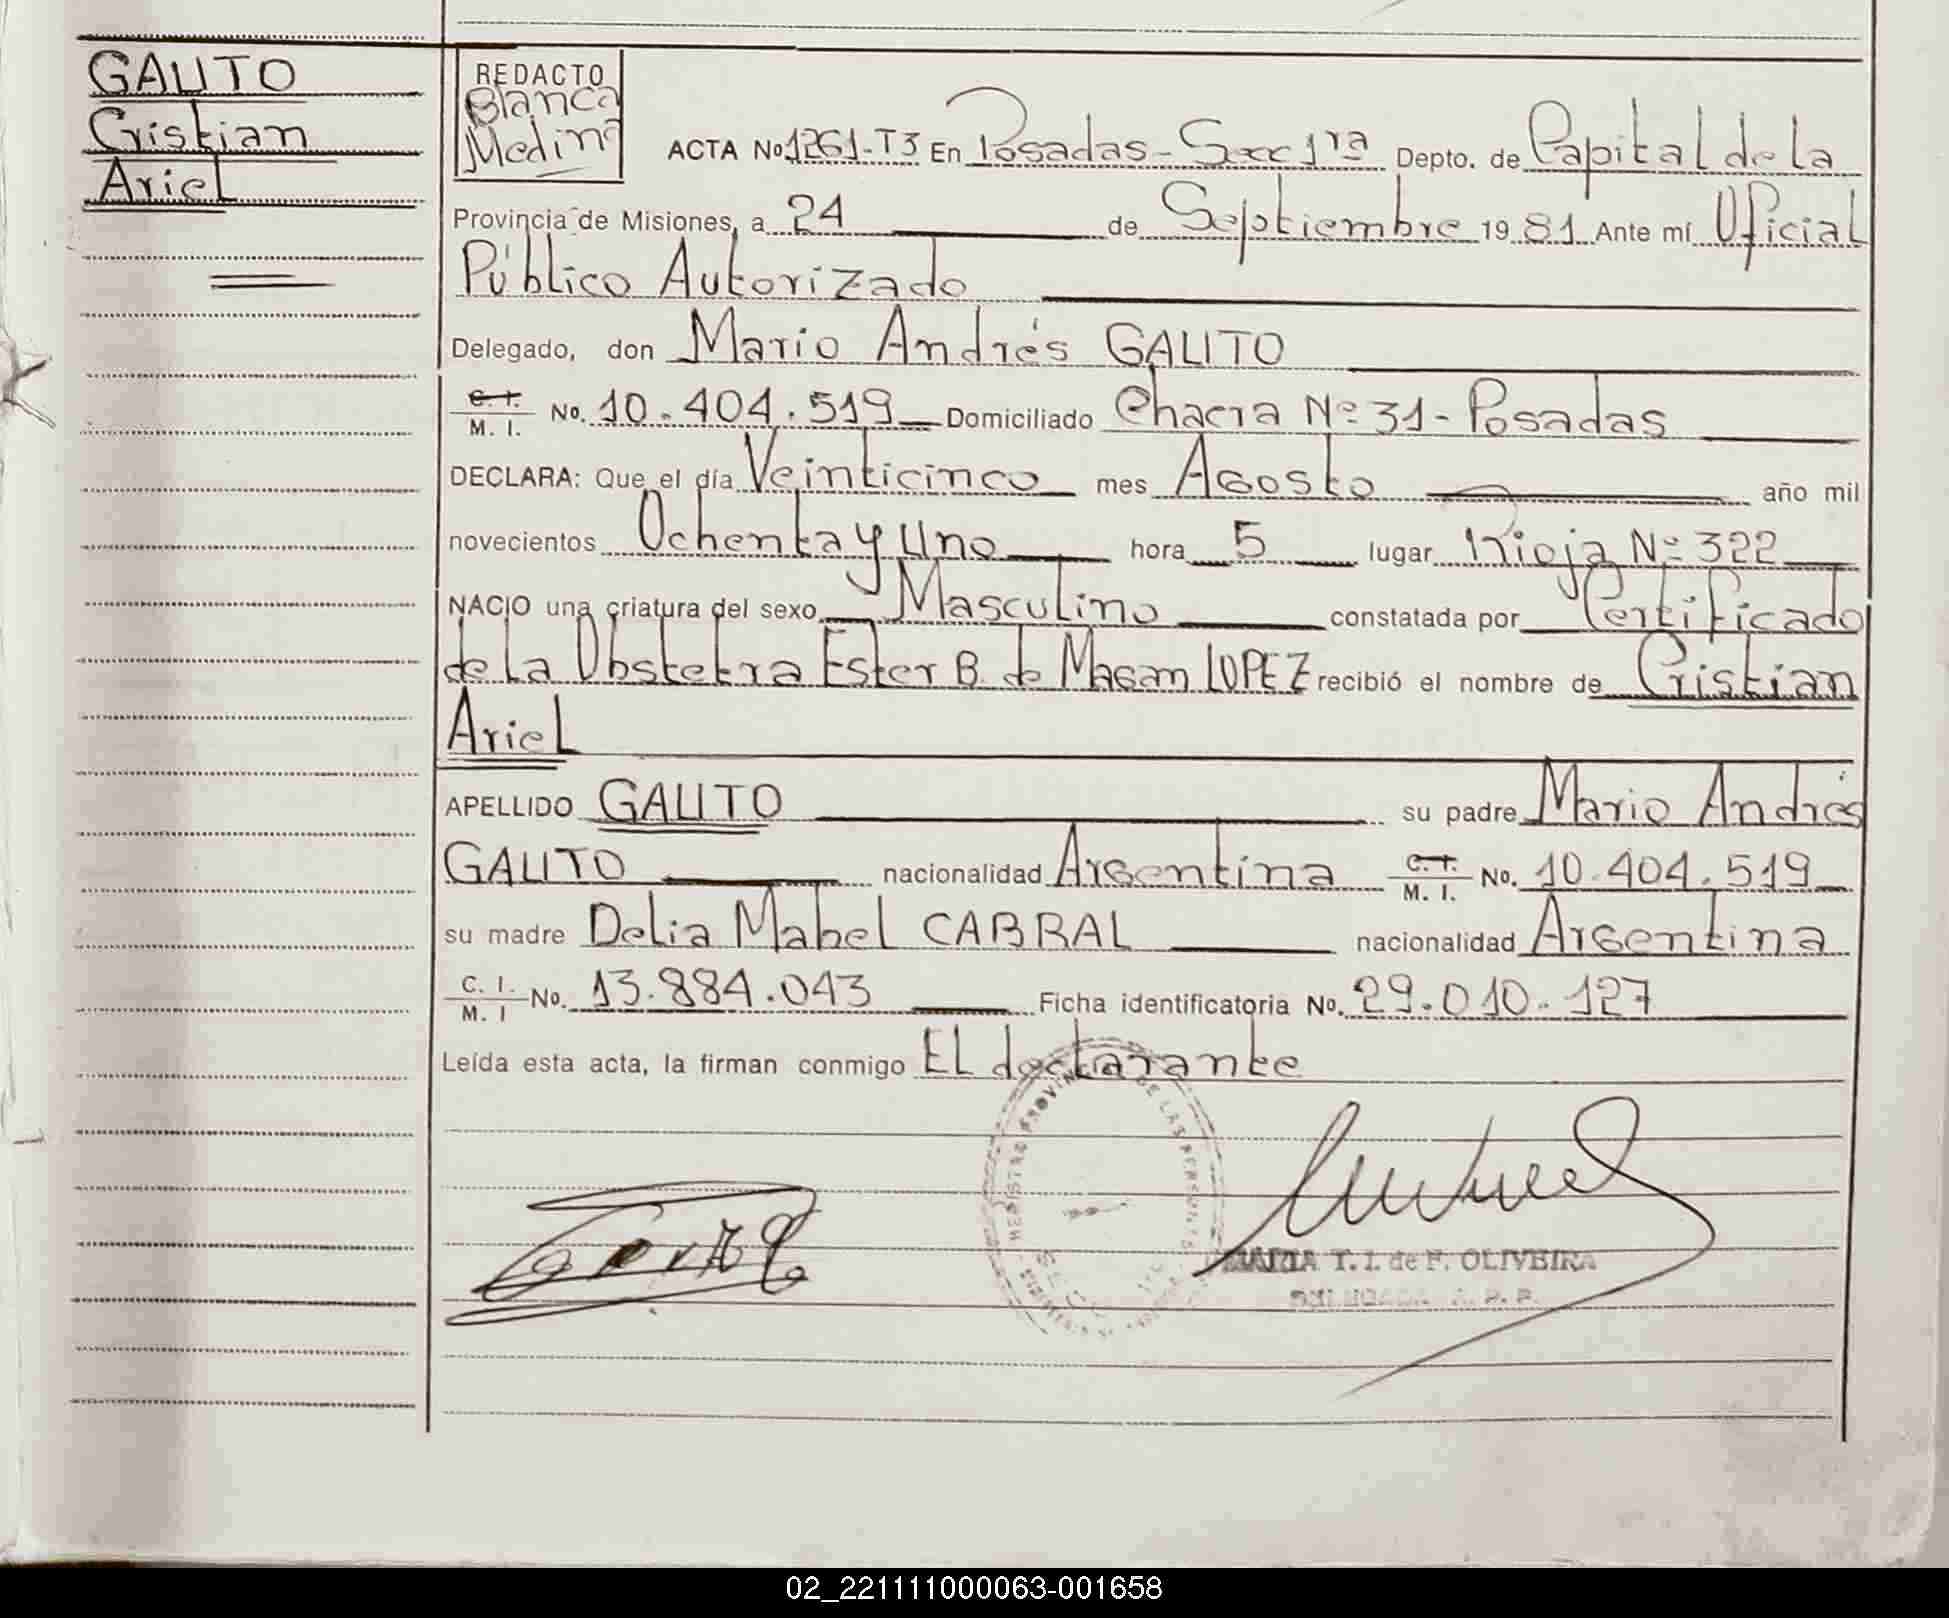 GAUTO
Cristian
Ariel
REDACTO
Blanca
Medina
ACTA No 1261-T3 En Posadas - Secc 1ra Depto. de Capital de la
Provincia de Misiones, a 24 de Septiembre 19 81 Ante mí Oficial
Público Autorizado
Delegado, don Mario Andrés GAUTO
C. I. M. I. No. 10.404.519 Domiciliado Chacra Nº 31 - Posadas
DECLARA: Que el día Veinticinco mes Agosto año mil
novecientos Ochenta y Uno hora 5 lugar Rioja Nº 322
NACIO una criatura del sexo Masculino constatada por Certificado
de la Obstetra Ester B. de Magan LOPEZ recibió el nombre de Cristian
Ariel
APELLIDO GAUTO su padre Mario Andrés
GAUTO nacionalidad Argentina C. I. M. I. No. 10.404.519
su madre Delia Mabel CABRAL nacionalidad Argentina
C. I. M. I No. 13.884.043 Ficha identificatoria No. 29.010.127
Leída esta acta, la firman conmigo El declarante
REGISTRO PROVINCIAL DE LAS PERSONAS
MARIA T. I. de F. OLIVEIRA
DELEGADA R. P. P.
02_221111000063-001658